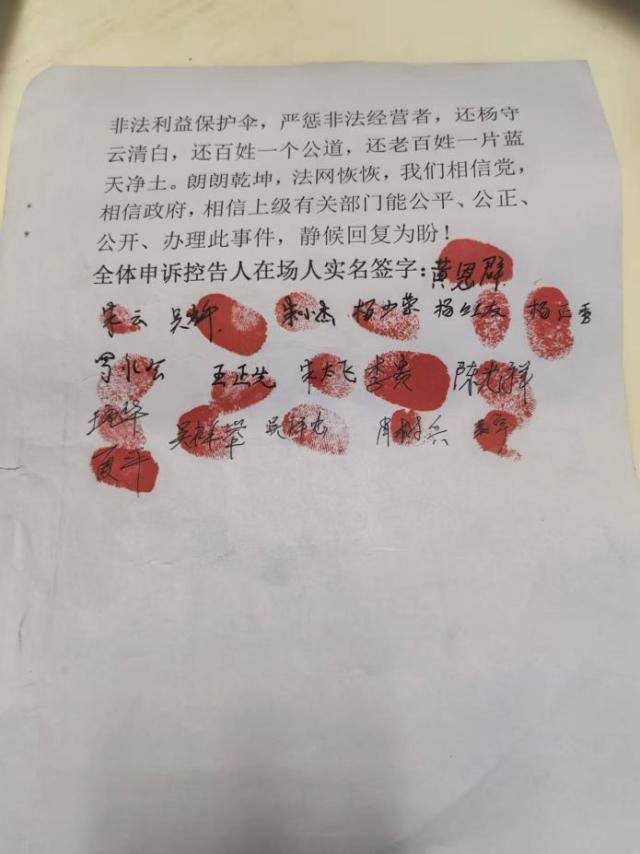 非法利益保护伞，严惩非法经营者，还杨守
云清白，还百姓一个公道，还老百姓一片蓝
天净土。朗朗乾坤，法网恢恢，我们相信党，
相信政府，相信上级有关部门能公平、公正、
公开、办理此事件，静候回复为盼！
全体申诉控告人在场人实名签字：黄恩群
朱云 朱小杰 杨少荣
王正先 朱大飞 李贵 陈光祥
吴祥荣 肖树兵
夏平